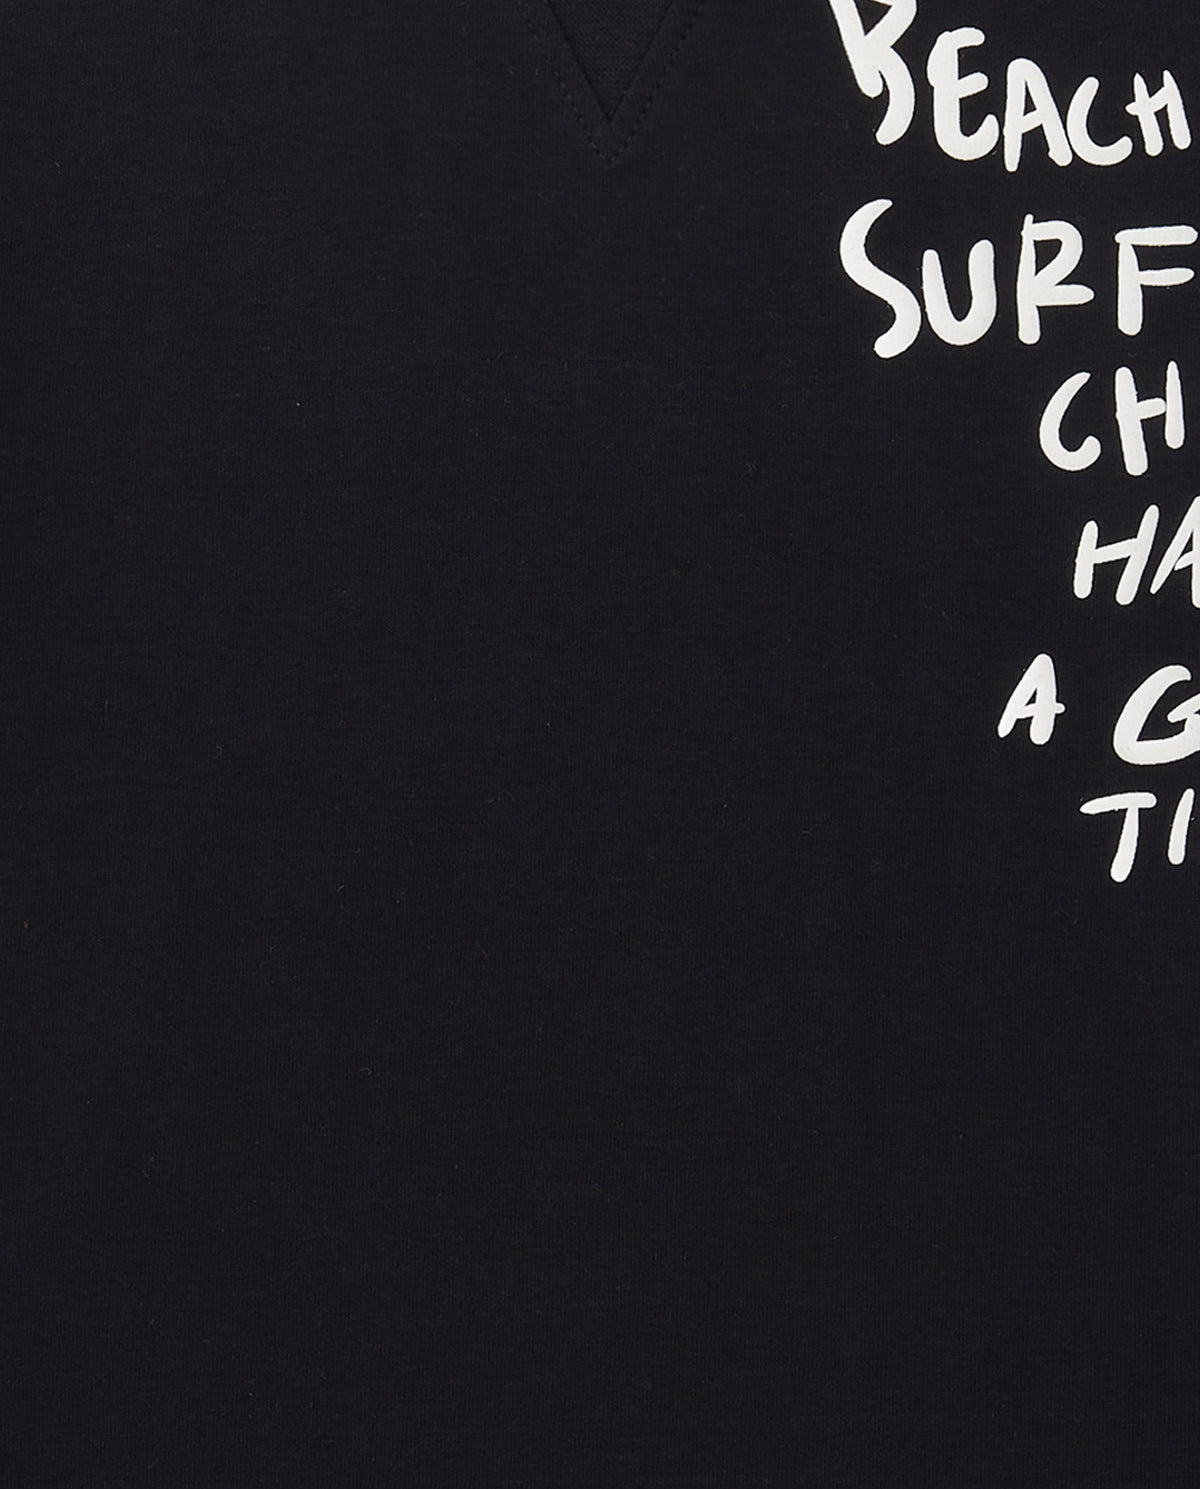 BEACH
SURF
CH
HA
A G
TI